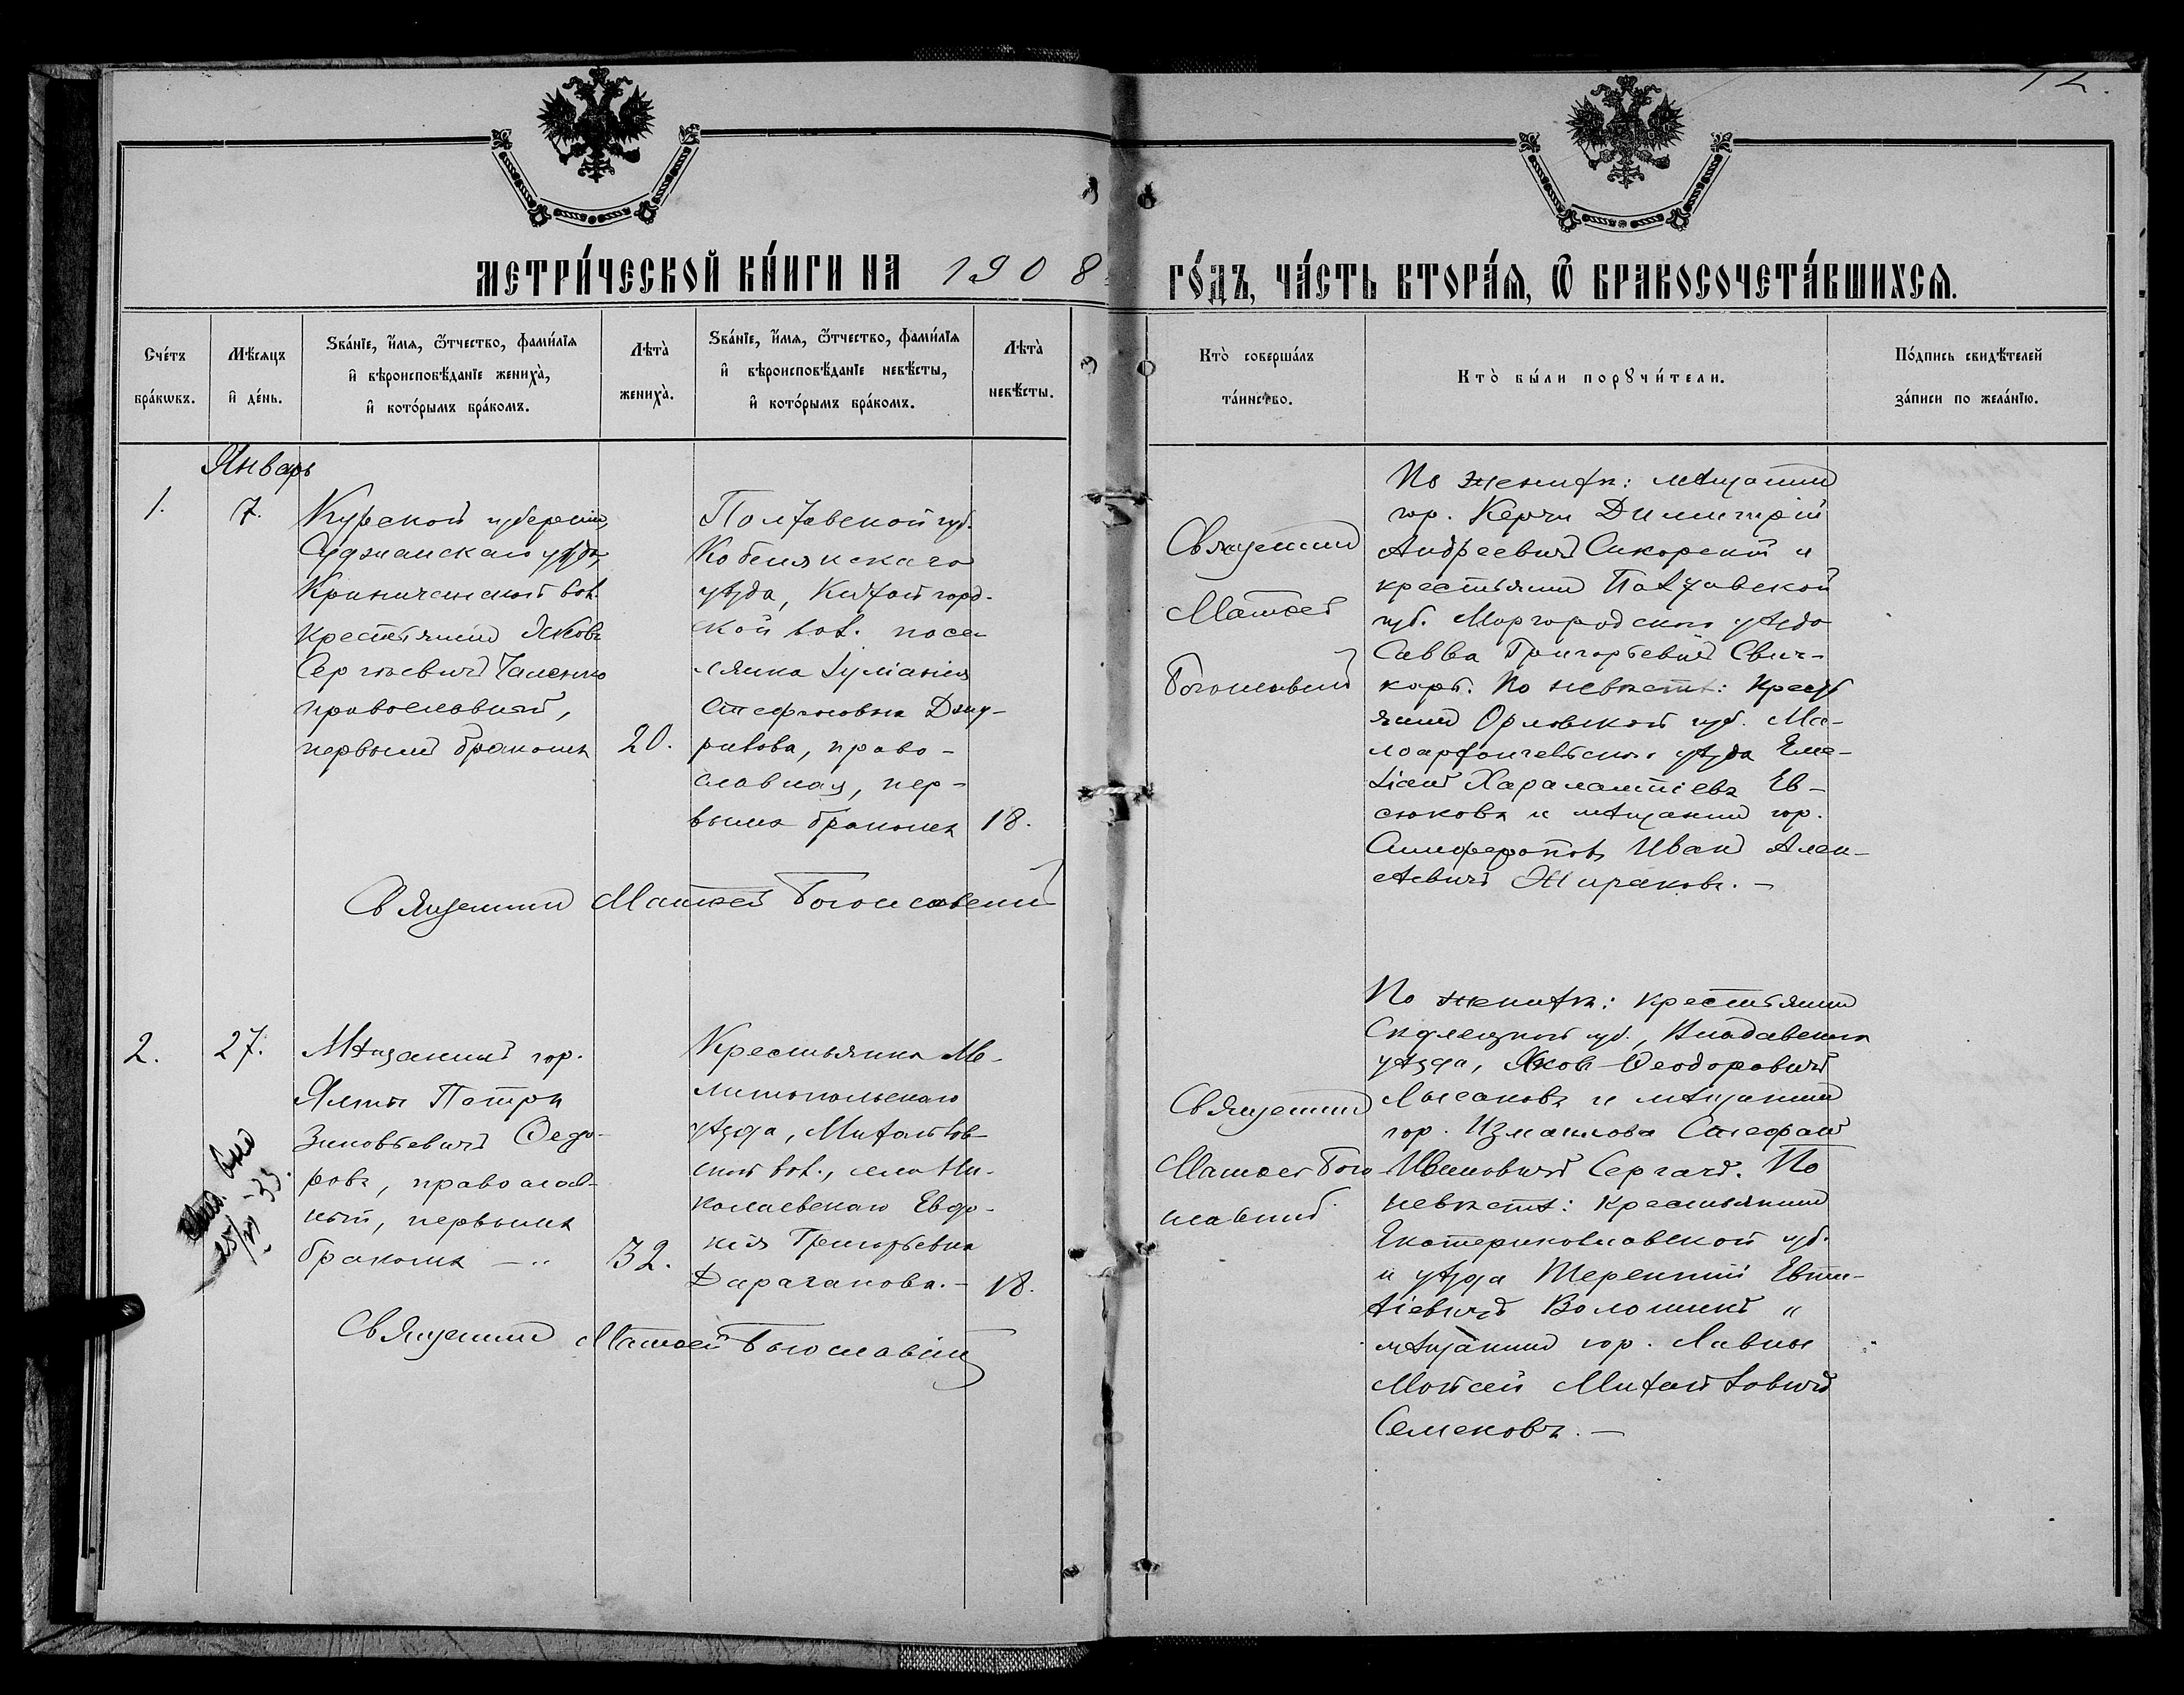 12.
МЕТРИ́ЧЕСКОЙ КНИ́ГИ НА 1908 ГО́ДЪ, ЧА́СТЬ ВТОРА́Я, Ѿ БРАКОСОЧЕТА́ВШИХСЯ.
Сче́тъ
бра́кѡвъ.
Мѣ́сяцъ
и҆ де́нь.
Ѕва́нїе, и҆́мя, ѻ҆́тчество, фами́лїя
и҆ вѣроисповѣ́данїе жениха̀,
и҆ кото́рымъ бра́комъ.
Лѣта̀
жениха̀.
Ѕва́нїе, и҆́мя, ѻ҆́тчество, фами́лїя
и҆ вѣроисповѣ́данїе невѣ́сты,
и҆ кото́рымъ бра́комъ.
Лѣта̀
невѣ́сты.
Кто̀ соверша́лъ
та́инство.
Кто̀ бы́ли порꙋчи́тели.
По́дпись свидѣ́телей
за́писи по жела́нїю.
Январь
1.
7.
Курской губерніи,
Суджанскаго уѣзда,
Криничанской вол.
крестьянинъ Яковъ
Сергѣевичъ Чаленко
православный,
первымъ бракомъ
20.
Полтавской губ.
Кобелякскаго
уѣзда, Китайгород-
ской вол. посе-
лянка Іуліанія
Стефановна Дзю-
рикова, право-
славная, пер-
вымъ бракомъ
18.
Священникъ
Матѳей
Богословскій
По женихѣ: мѣщанинъ
гор. Керчи Димитрій
Андреевичъ Сикорскій и
крестьянинъ Полтавской
губ. Миргородскаго уѣзда
Савва Григорьевичъ Свич-
карь. По невѣстѣ: крест
янинъ Орловской губ. Ма-
лоархангельскаго уѣзда Еме-
ліанъ Харалампіевъ Ев-
сюковъ и мѣщанинъ гор.
Симферополь Иванъ Алек-
сѣевичъ Жираковъ. —
Священникъ Матѳей Богословскій
2.
27.
Мѣщанинъ гор.
Ялты Петръ
Зиновьевичъ Ѳедо-
ровъ, православ-
ный, первымъ
бракомъ —
32.
Крестьянка Ме-
литопольскаго
уѣзда, Михайлов-
ской вол., села Ни-
колаевскаго Евдо-
кія Григорьевна
Дараганова. —
18.
25/VI - 33.
Священникъ
Матѳей Бого
словскій
По женихѣ: крестьянинъ
Сѣдлецкой губ., Влодавскаго
уѣзда, Яковъ Ѳеодоровичъ
Лысаковъ и мѣщанинъ
гор. Измаилова Стефанъ
Ивановичъ Сергачъ. По
невѣстѣ: крестьянинъ
Екатеринославской губ.
и уѣзда Терентій Евти-
хіевичъ Волошинъ и
мѣщанинъ гор. Ливны
Моисей Михайловичъ
Семеновъ. —
Священникъ Матѳей Богословскій